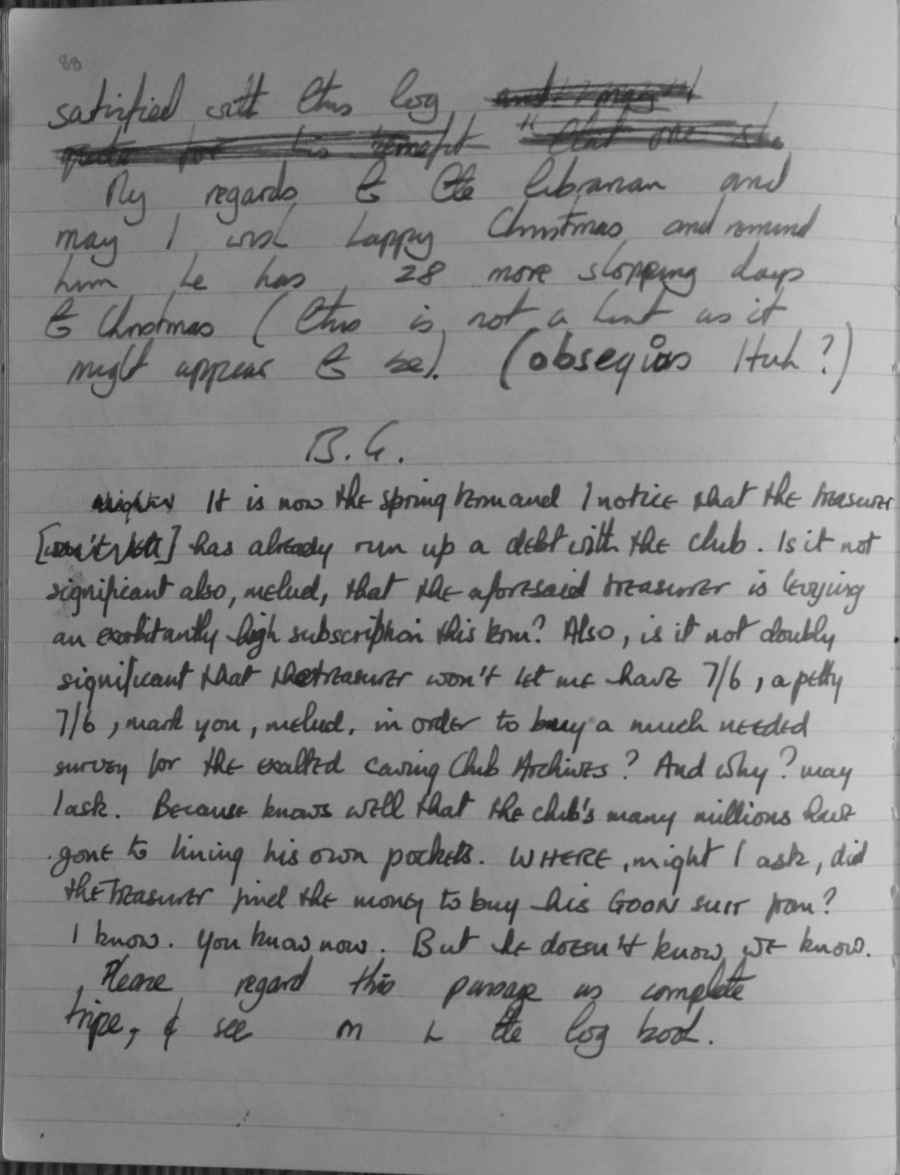 88
satisfied with this log
My regards to the librarian and
may I wish happy Christmas and remind
him he has 28 more shopping days
to Christmas (this is not a hint as it
might appear to be). (obseqios Huh?)
B.G.
It is now the spring term and I notice that the treasurer
has already run up a debt with the club. Is it not
significant also, melud, that the aforesaid treasurer is levying
an exorbitantly high subscription this term? Also, is it not doubly
significant that the treasurer won't let me have 7/6, a petty
7/6, mark you, melud, in order to buy a much needed
survey for the exalted Caving Club Archives? And why? may
I ask. Because knows well that the club's many millions have
gone to lining his own pockets. WHERE, might I ask, did
the treasurer find the money to buy his GOON suit from?
I know. You know now. But he doesn't know we know.
Please regard this passage as complete
tripe, & see in the log book.